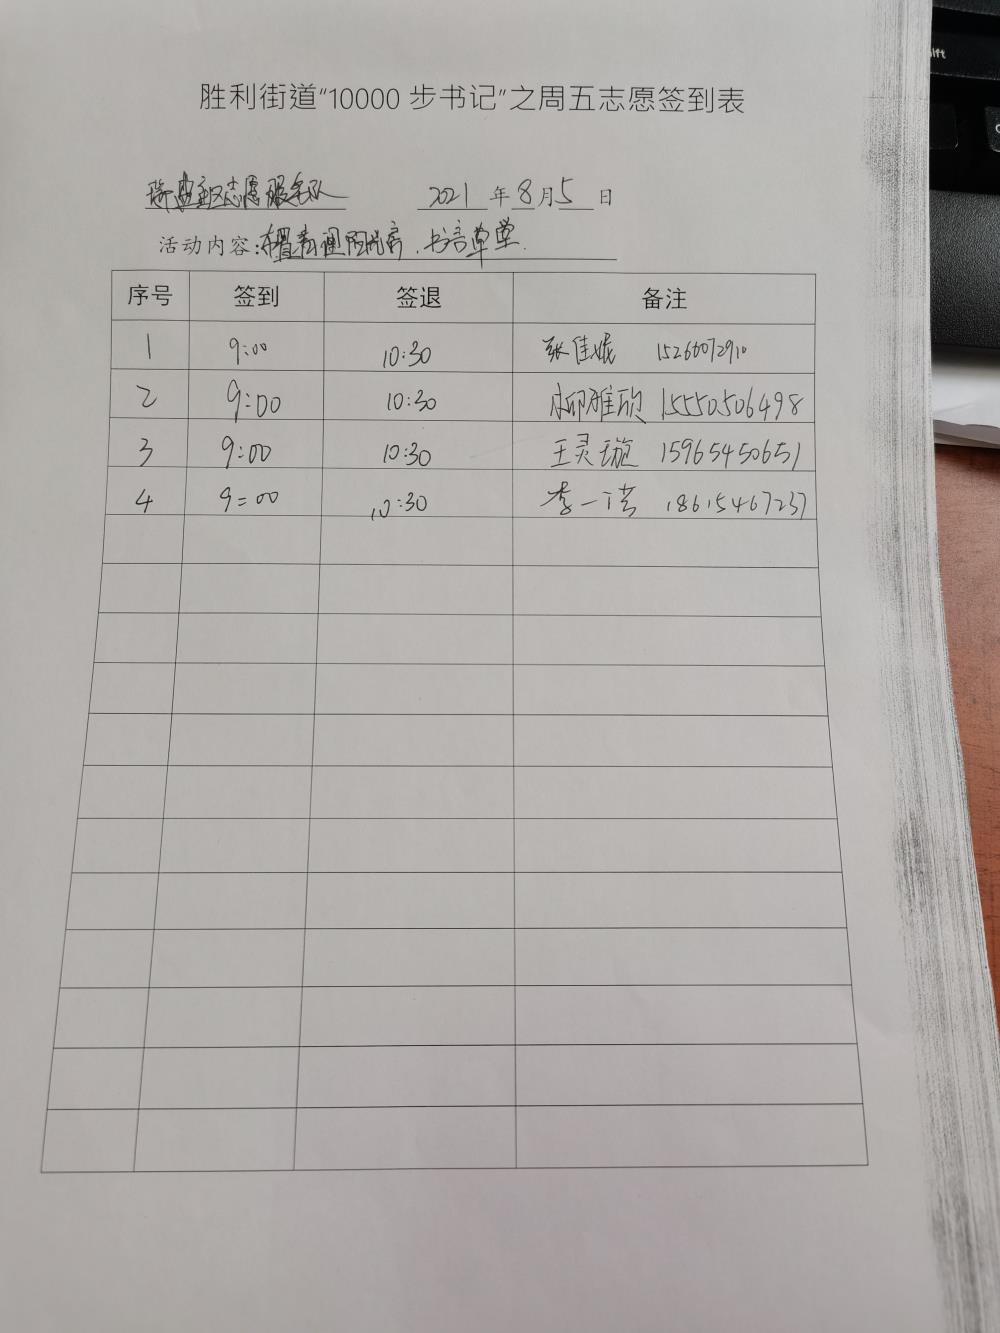 胜利街道“10000 步书记”之周五志愿签到表
社区志愿服务队 2021 年 8 月 5 日
活动内容: 阳光房
序号 签到 签退 备注
1 9:00 10:30 张佳 15266072910
2 9:00 10:30 柳雅欣 15550506498
3 9:00 10:30 王灵璇 15965450651
4 9:00 10:30 李一 18615467237